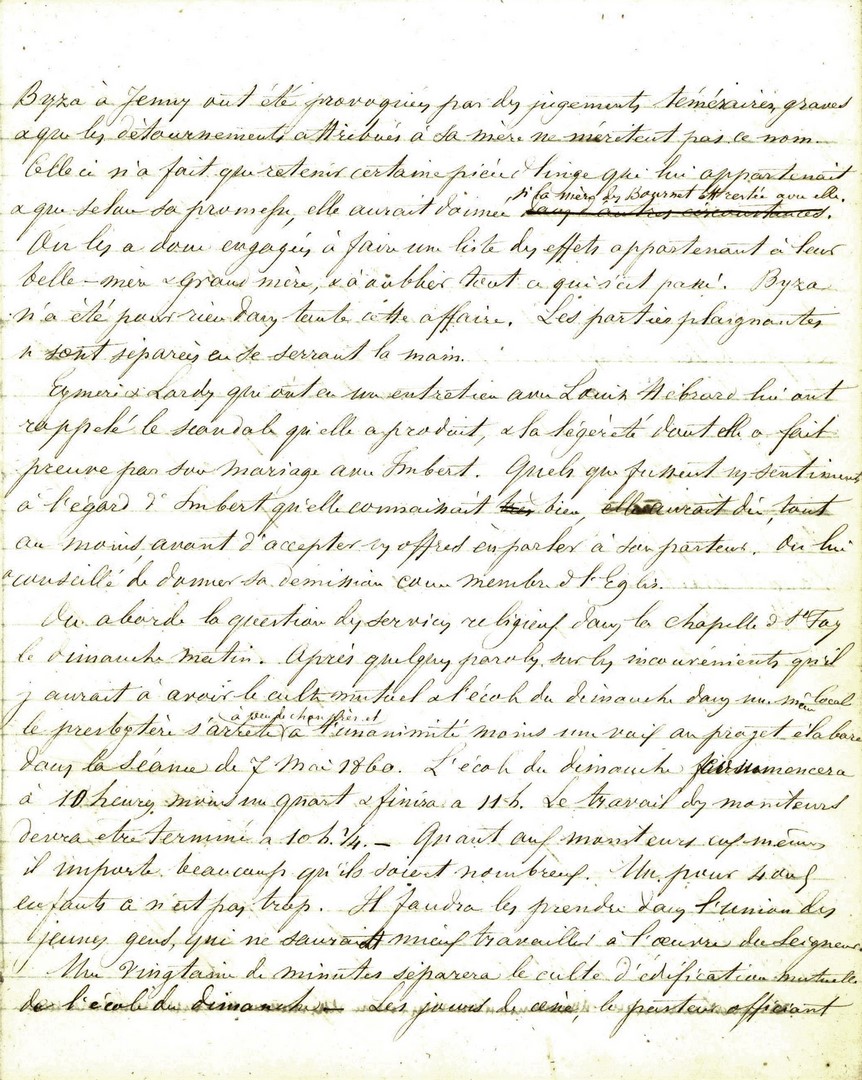 Byza à Jenny ont été provoquées par des jugements téméraires, graves
& que les détournements attribués à sa mère ne méritent pas ce nom.
Celle ci n'a fait que retenir certaine pièce d linge qui lui appartenait
si la mère des Bournet était restée avec elle.
& que selon sa promesse, elle aurait donnée dans d'autres circonstances.
On les a donc engagés à faire une liste des effets appartenant à leur
belle-mère & grand mère, & à oublier tout ce qui s'est passé. Byza
n'a été pour rien dans toute cette affaire. Les parties plaignantes
se sont séparées en se serrant la main.
Eymeri & Lardy qui ont eu un entretien avec Louise Hébrard lui ont
rappelé le scandale qu'elle a produit, & la légèreté dont elle a fait
preuve par son mariage avec Imbert. Quels que fussent ses sentiments
à l'égard d'Imbert qu'elle connaissait très bien, elle aurait dû, tout
au moins, avant d'accepter ses offres en parler à son pasteur. On lui
a conseillé de donner sa démission comme membre d l'Eglise.
On aborde la question des services religieux dans la chapelle d Ste Foy
le dimanche matin. Après quelques paroles sur les inconvénients qu'il
y aurait à avoir le culte mutuel & l'école du dimanche dans un même local
à peu de chose près et
le presbytère s'arrête à l'unanimité moins une voix au projet élaboré
dans la séance du 7 Mai 1860. L'école du dimanche commencera
à 10 heures moins un quart & finira a 11 h. Le travail des moniteurs
devra etre terminé a 10 h. 1/4. – Quant aux moniteurs eux mêmes
il importe beaucoup qu'ils soient nombreux. Un pour 4 ou 5
enfants ce n'est pas trop. Il faudra les prendre dans l'union des
jeunes gens, qui ne saurait mieux travailler à l'œuvre du Seigneur.
Une vingtaine de minutes séparera le culte d'édification mutuelle
de l'école du dimanche – Les jours de cène, le pasteur officiant